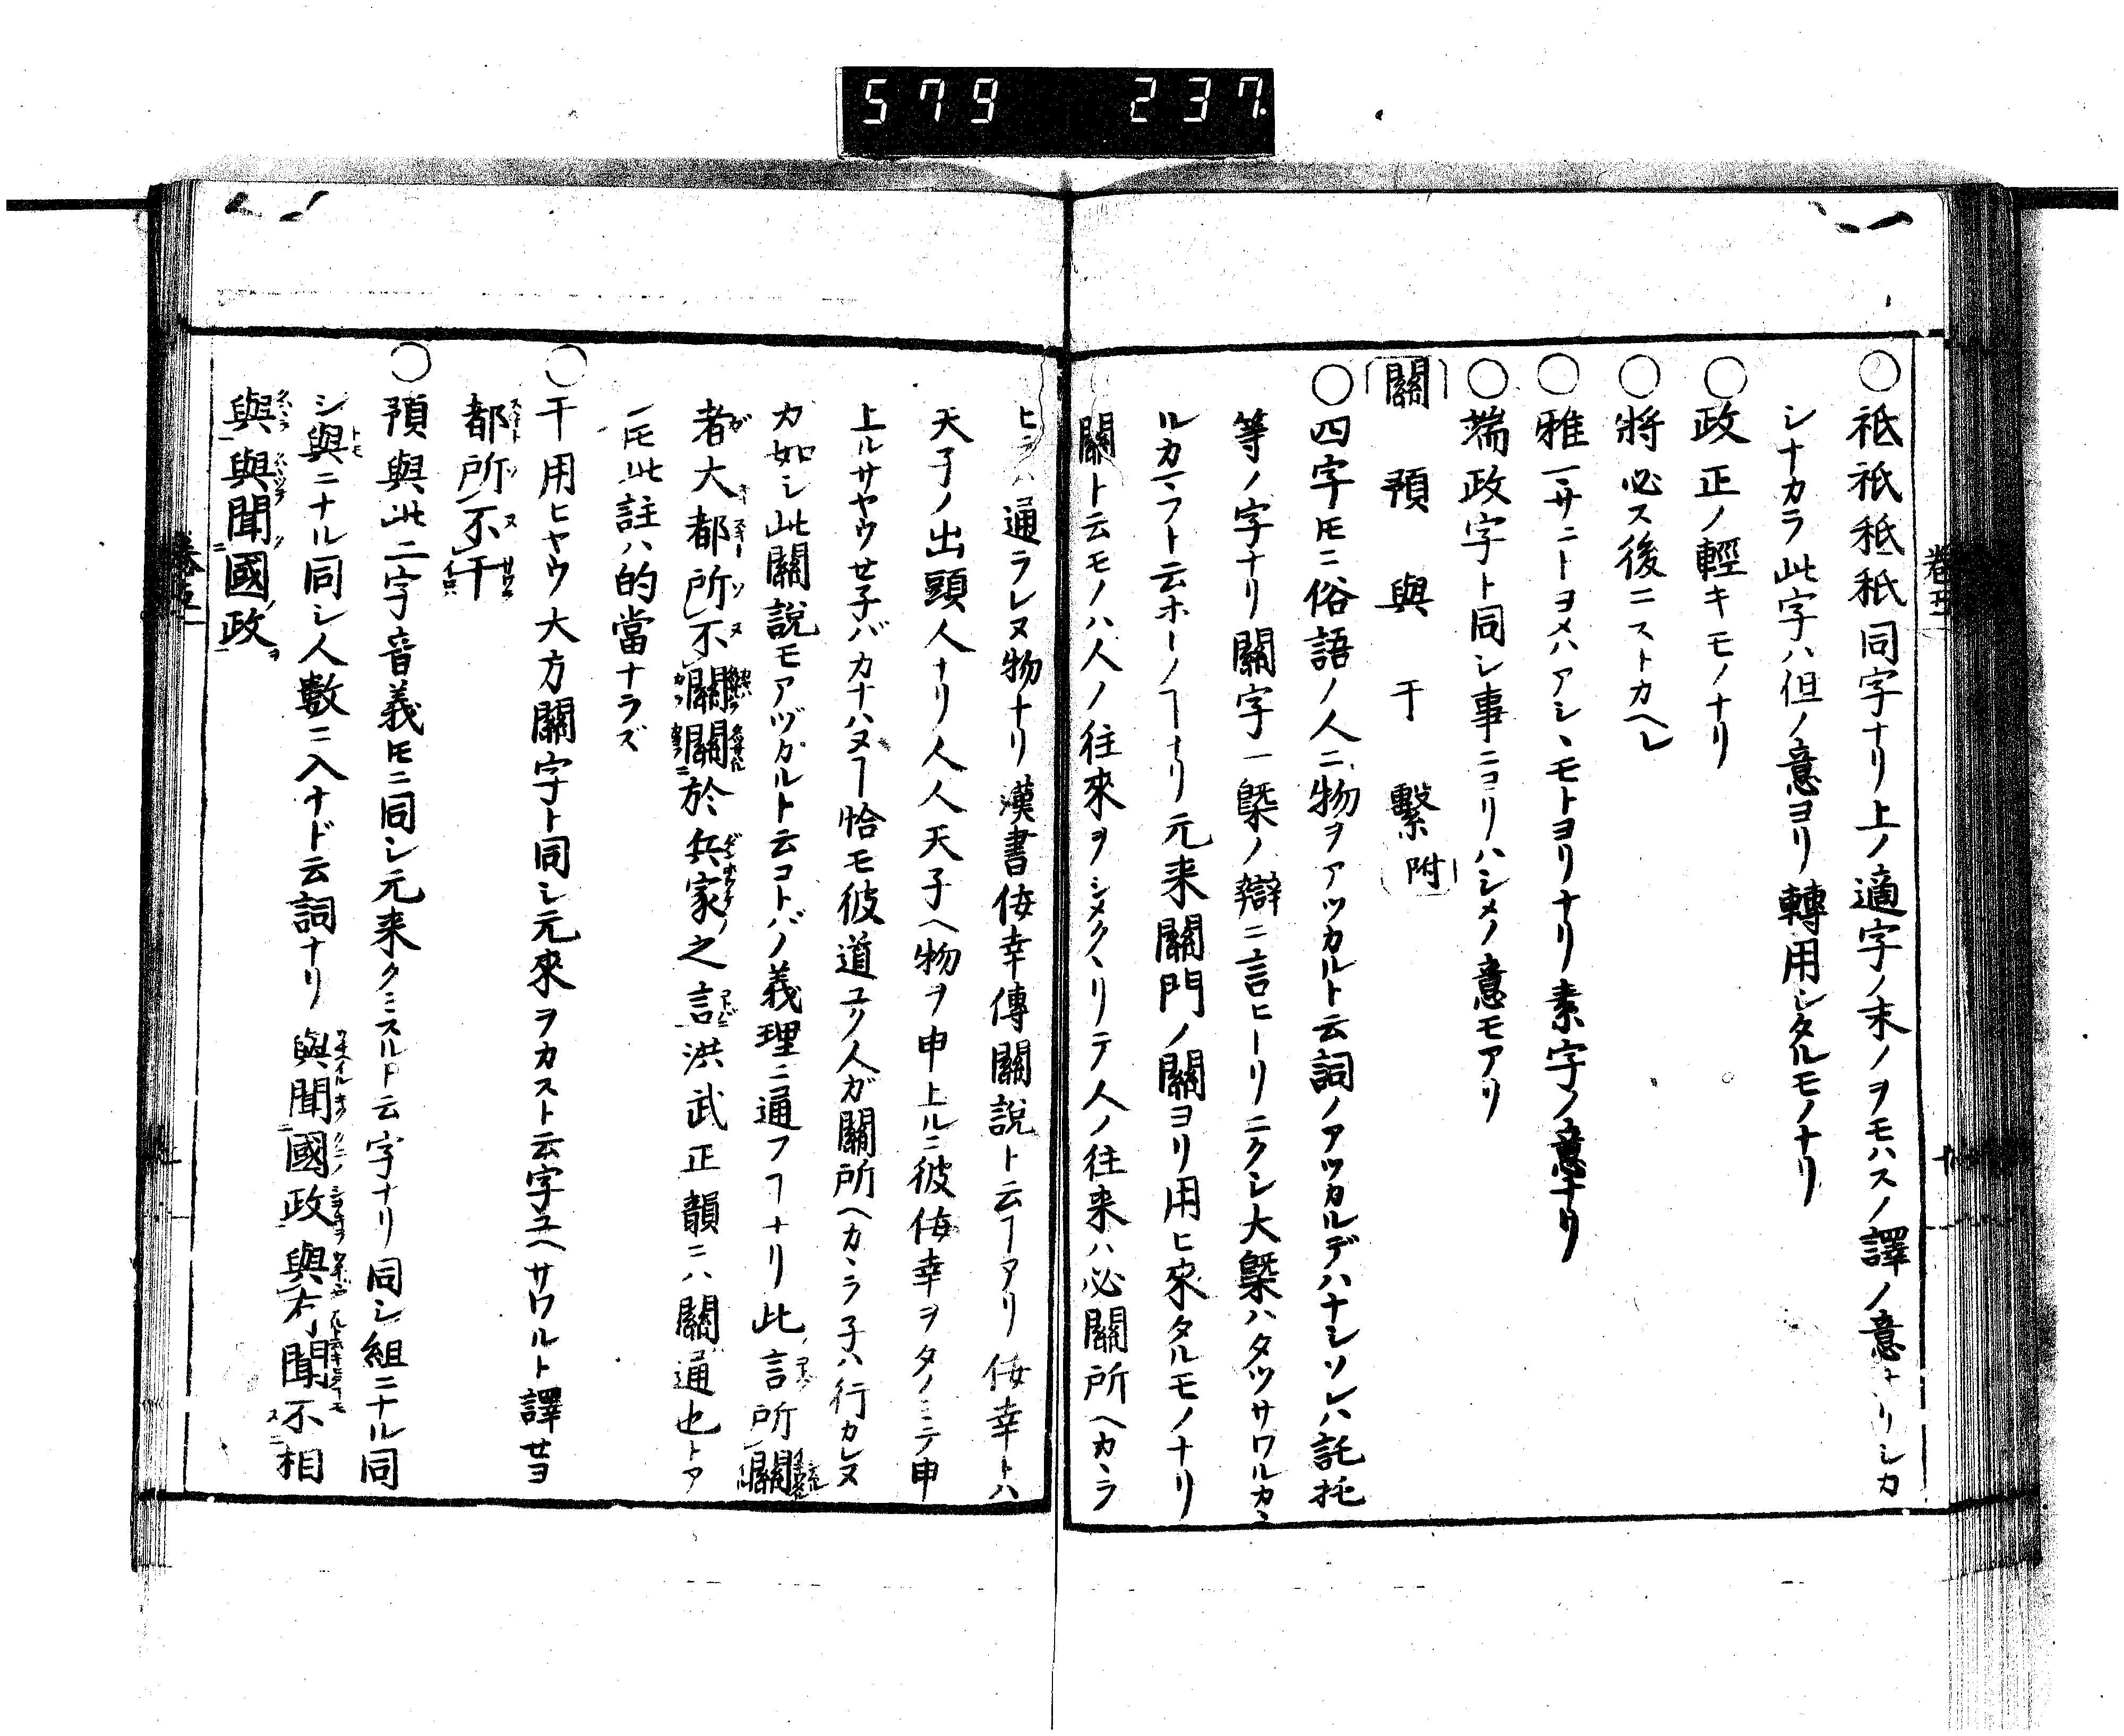 579 237
○祗祇秖秪同字ナリ上ノ適字ノ末ノヲモハスノ譯ノ意ナリシカ
シナカラ此字ハ但ノ意ヨリ轉用シタルモノナリ
○政正ノ輕キモノナリ
○將必ス後ニストカヘレ
○雅マサニトヨメハアシヽモトヨリナリ素字ノ意ナリ
○端政字ト同シ事ニコリハシメノ意モアリ
關預與干繫附
○四字𪜈ニ俗語ノ人ニ物ヲアツカルト云詞ノアツカルデハナシソレハ託托
等ノ字ナリ關字一槩ノ辯ニ言ヒーリニクシ大槩ハタツサワルカヽ
ルカヽラト云ホーノヿナリ元来關門ノ關ヨリ用ヒ來タルモノナリ
關ト云モノハ人ノ往來ヲシメクヽリテ人ノ往来ハ必關所ヘカヽラ
ヒデハ通ラレヌ物ナリ漢書侫幸傳關說ト云ヿアリ侫幸トハ
天子ノ出頭人ナリ人人天子ヘ物ヲ申上ルニ彼侫幸ヲタノミテ申
上ルサヤウセ子バカナハヌヿ恰モ彼道ユク人ガ關所ヘカヽラ子ハ行カレヌ
カ如シ此關說モアヅカルト云コトバノ義理ニ通フヿナリ此言所關
者大都所不關關於兵家之言洪武正韻ニハ關通也トア
レ𪜈此註ハ的當ナラズ
○干用ヒヤウ大方關字ト同シ元來ヲカスト云字ユヘサワルト譯セヨ
都所不干
○預與此二字音義𪜈ニ同シ元来クミスルト云字ナリ同シ組ニナル同
シ與ニナル同シ人數ニ入ナド云詞ナリ與聞國政與有聞不相
與與聞國政
卷五
卷五